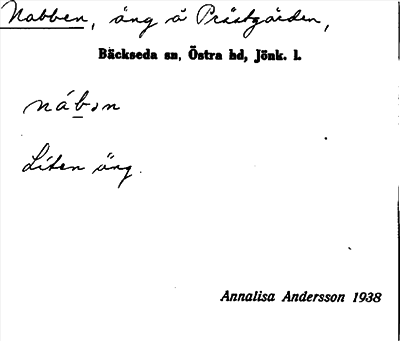 Nabben, äng å Prästgården,
Bäckseda sn, Östra hd, Jönk. l.
nábən
Liten äng.
Annalisa Andersson 1938